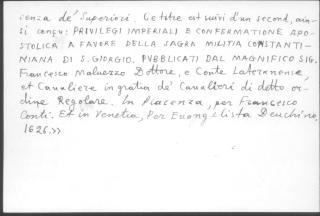 cenza de' Superiori. Ce titre est suivi d'un second, ain-
si conçu: PRIVILEGI IMPERIALI E CONFERMATIONE APO-
STOLICA A FAVORE DELLA SAGRA MILITIA CONSTANTI-
NIANA DI S. GIORGIO. PUBBLICATI DAL MAGNIFICO SIG.
Francesco Malvezzo Dottore, e Conte Lateranense,
et Cavaliere in gratia de' Cavalieri di detto or-
dine Regolare. In Piacenza, per Francesco
Conti. Et in Venetia, Per Evangelista Deuchino.
1626.>>